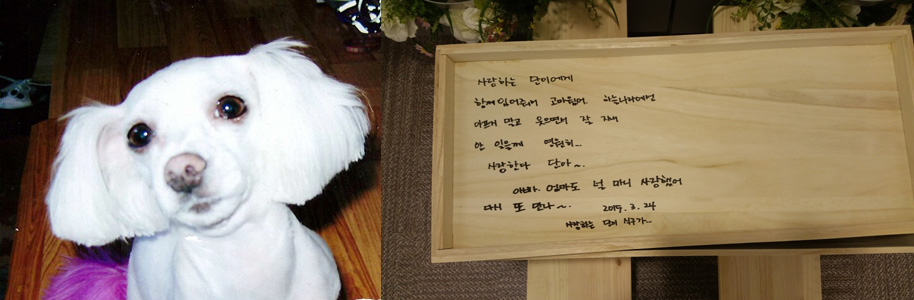 사랑하는 단이에게
함께 있어줘서 고마웠어. 하늘나라에선
아프지 말고 웃으면서 잘 지내
안 잊을께 영원히...
사랑한다 단아~.
아빠. 엄마도 널 마니 사랑했어
다시 또 만나~. 2015. 3. 24
사랑하는 단이 식구가...